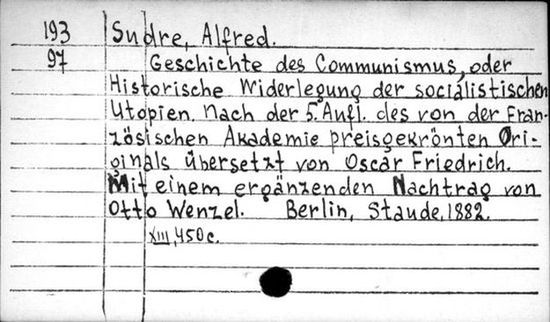 193 Sudre, Alfred.
97 Geschichte des Communismus, oder
Historische Widerlegung der socialistischen
Utopien. Nach der 5. Aufl. des von der Fran-
zösischen Akademie preisgekrönten Ori-
ginals übersetzt von Oscar Friedrich.
Mit einem ergänzenden Nachtrag von
Otto Wenzel. Berlin, Staude, 1882.
XIII, 450 c.